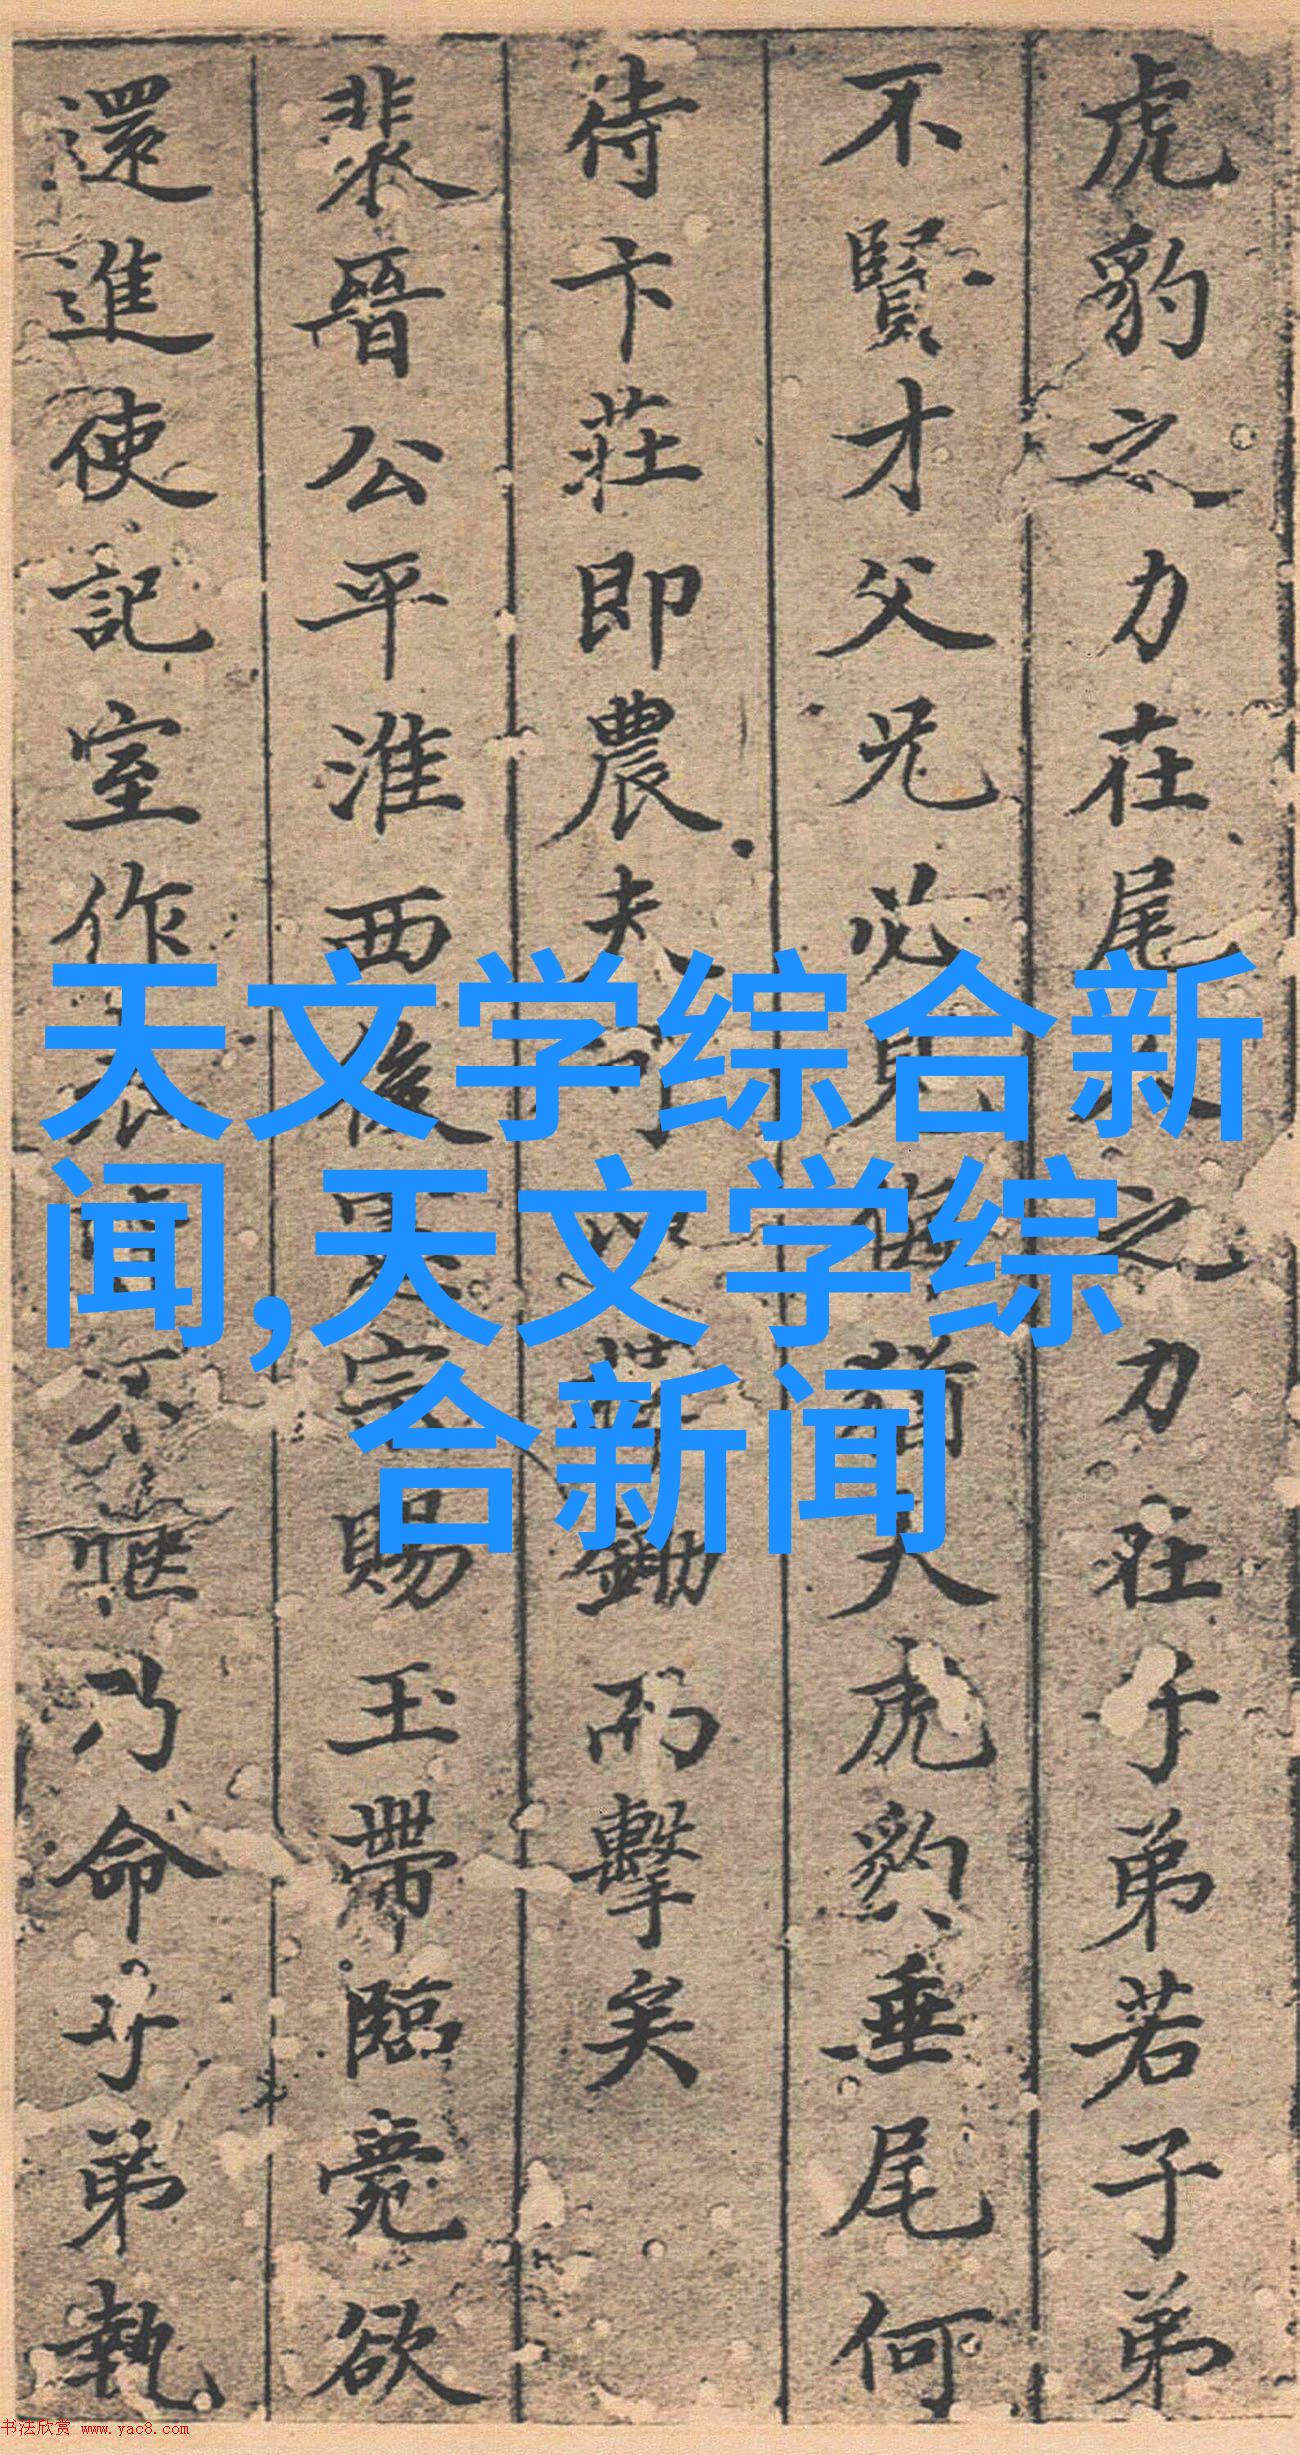 虎豹之力在尾之力壯子弟若子弟
不賢才父兄必大虎豹垂尾何
待卞莊即農夫鋤而擊矣
裴晉公平淮西後賜玉帶臨薨欲
還進使記室作乃命子弟執
天文学综合新
闻,天文学综
合新闻
书法欣赏 www.yac8.com